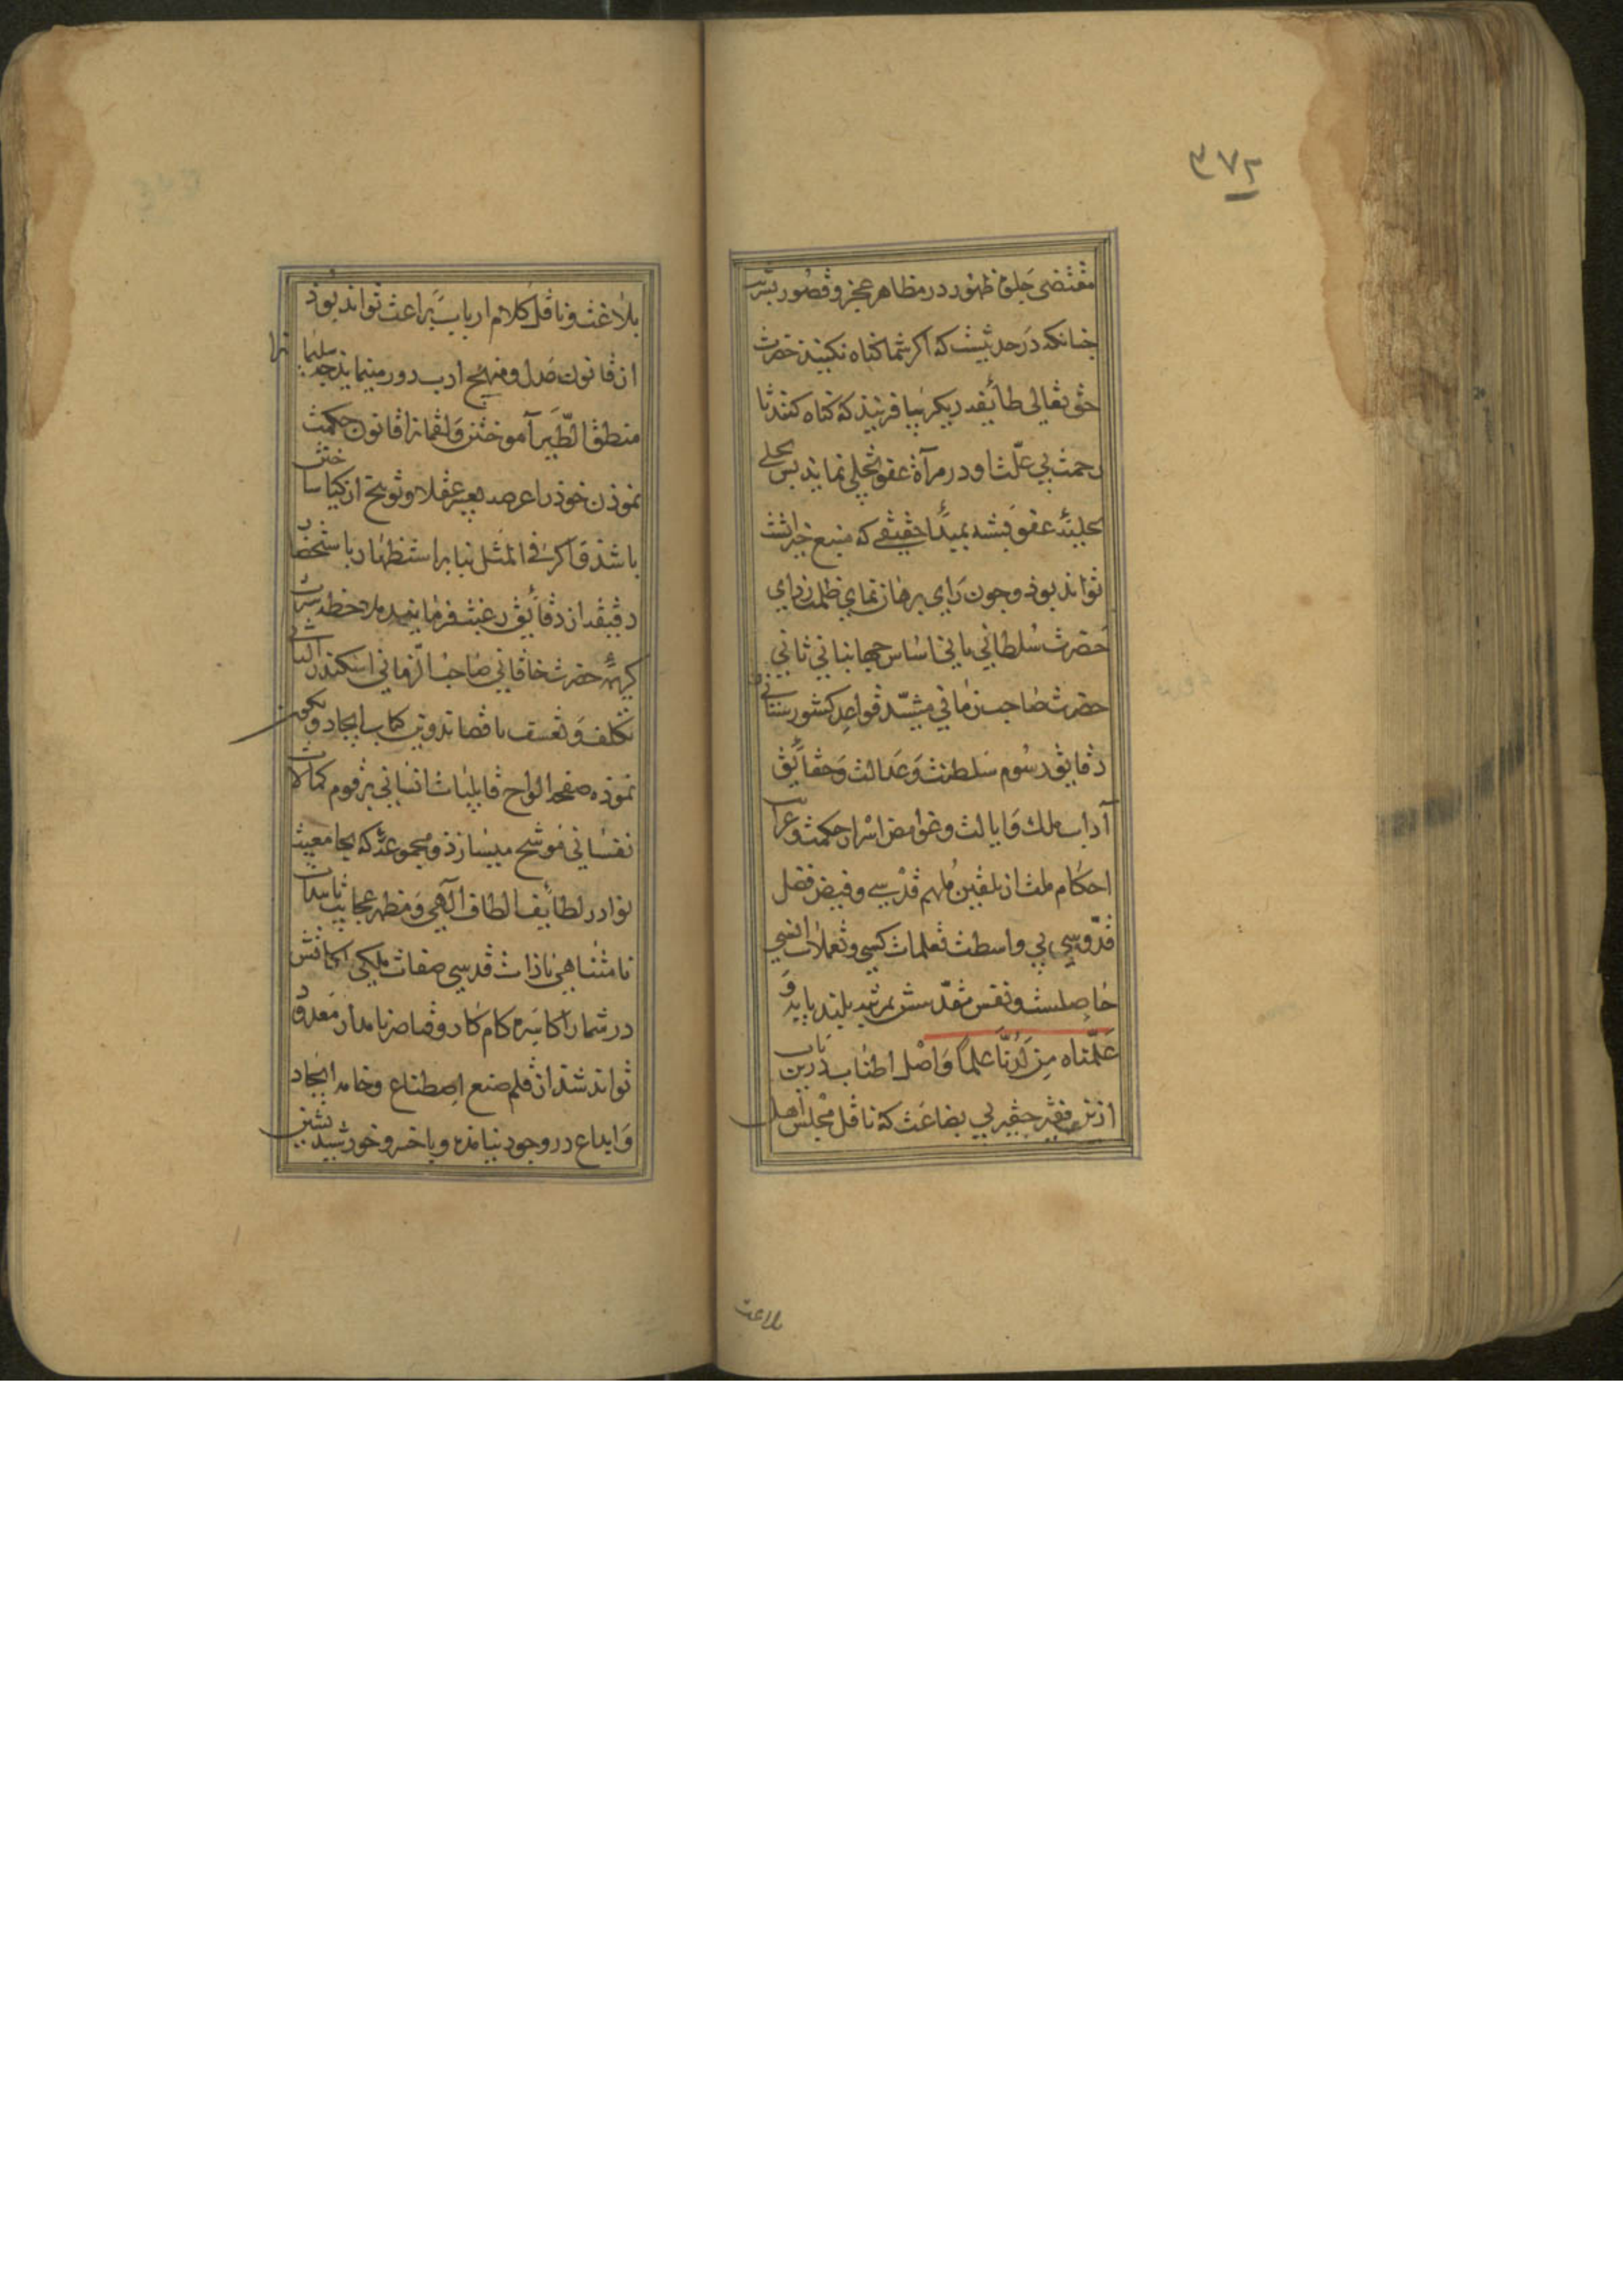 ۳۷۲
مقتضی جلوهٔ ظهور در مظاهر عجز و قصور بشریت
جنانکه در حدیثیست که اکر شما کناه نکنید حضرت
حق تعالی طائفه دیکر بیافریند که کناه کنند تا
رحمت بی علّت او در مرآة عفو تجلی نماید بس تحلی
بحلیهٔ عفو تشبه بمبدأ حقیقی که منبع خیراتست
تواند بوذ و جون رای برهان نمای ظلمت زدای
حضرت سُلطانی بانی اساس جهانبانی ثانی
حضرت صاحب زمانی مشیّد قواعد کشورستانی
دقایق رسوم سلطنت و عدالت و حقائق
آداب ملک و ایالت و غوامض اسرار حکمت و غرایب
احکام ملت از تلقین مُلهم قدسی و فیض فضل
قدّوسی بی واسطت تعلمات کسبی و تعملات انسی
حاصلست و نفس مقدّسش بمرتبه بلند بایه و
عَلَّمناه مِن لَدُنّا علماً و اصل اطناب درین باب
ازین فقیر حقیر بی بضاعت که ناقل مجلس اهل
بلاغت
بلاغت و ناقل کلام ارباب براعت تواند بوذ
از قانون صدل و منهج ادب دور مینماید جه سلیمانرا
منطق الطّیر آموختن و لقمانرا قانون حکمت
نموذن خوذ را عرصه تعییر عقلا و توبیخ از کیا ساختن
باشذ و اکر فی المثل بنابر استظهار باستحضار
دقیقه از دقائق رغبت فرمایند بملاحظه سرایت
کریمهٔ حضرت خاقانی صاحب الزمانی اسکندر الثانی
تکلف و تعسف باقصا تدوین کتاب ایجاد و تکوین
نموده صفحه الواح قابلیات انسانی برقوم کمالات
نفسانی موشح میسازذ و مجموعهٔ که بجامعیت
نوادر لطایف الطاف آلهی و مظهر عجایب تاییدات
نامتناهی با ذات قدسی صفات ملکی ملکاتش
در شمار اکاسره کام کار و قیاصره نامدار معدود
تواند شذ از قلم صنع اصطناع و خامه ایجاد
و ابداع در وجود نیامده و با خسرو خورشید نشین